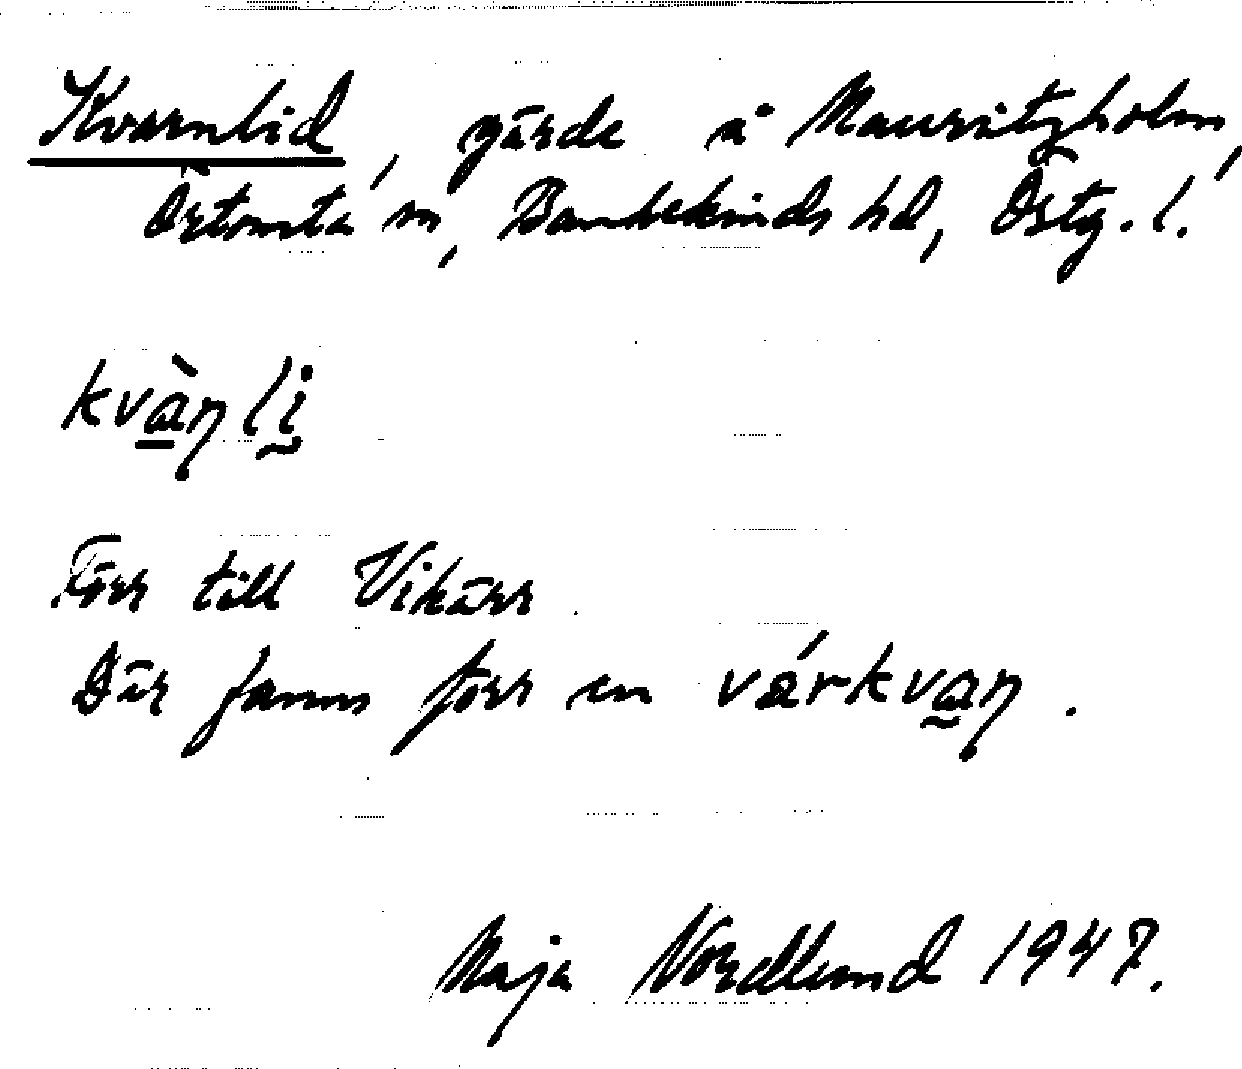 Kvarnlid, gärde å Mauritzholm,
Örtomta sn, Bankekinds hd, Östg. l.
kvàɳ li
Förr till Vikärr
Där fanns förr en várkvaɳ.
Maja Nordlund 1947.